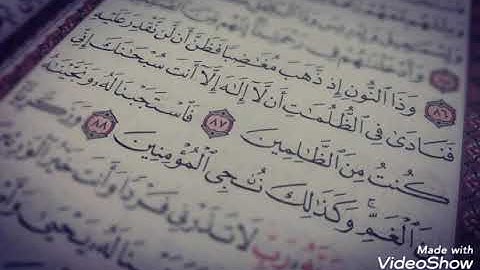 وَأَدْخَلْنَٰهُمْ فِى رَحْمَتِنَآ إِنَّهُم
٨٦ وَذَا ٱلنُّونِ إِذ ذَّهَبَ مُغَٰضِبًا فَظَنَّ أَن لَّن نَّقْدِرَ عَلَيْهِ
فَنَادَىٰ فِى ٱلظُّلُمَٰتِ أَن لَّآ إِلَٰهَ إِلَّآ أَنتَ سُبْحَٰنَكَ إِنِّى
كُنتُ مِنَ ٱلظَّٰلِمِينَ ٨٧ فَٱسْتَجَبْنَا لَهُۥ وَنَجَّيْنَٰهُ
ٱلْغَمِّ ۚ وَكَذَٰلِكَ نُۨجِى ٱلْمُؤْمِنِينَ ٨٨ وَزَكَرِيَّآ
رَبِّ لَا تَذَرْنِى فَرْدًا وَأَنتَ خَيْرُ
Made with
VideoShow